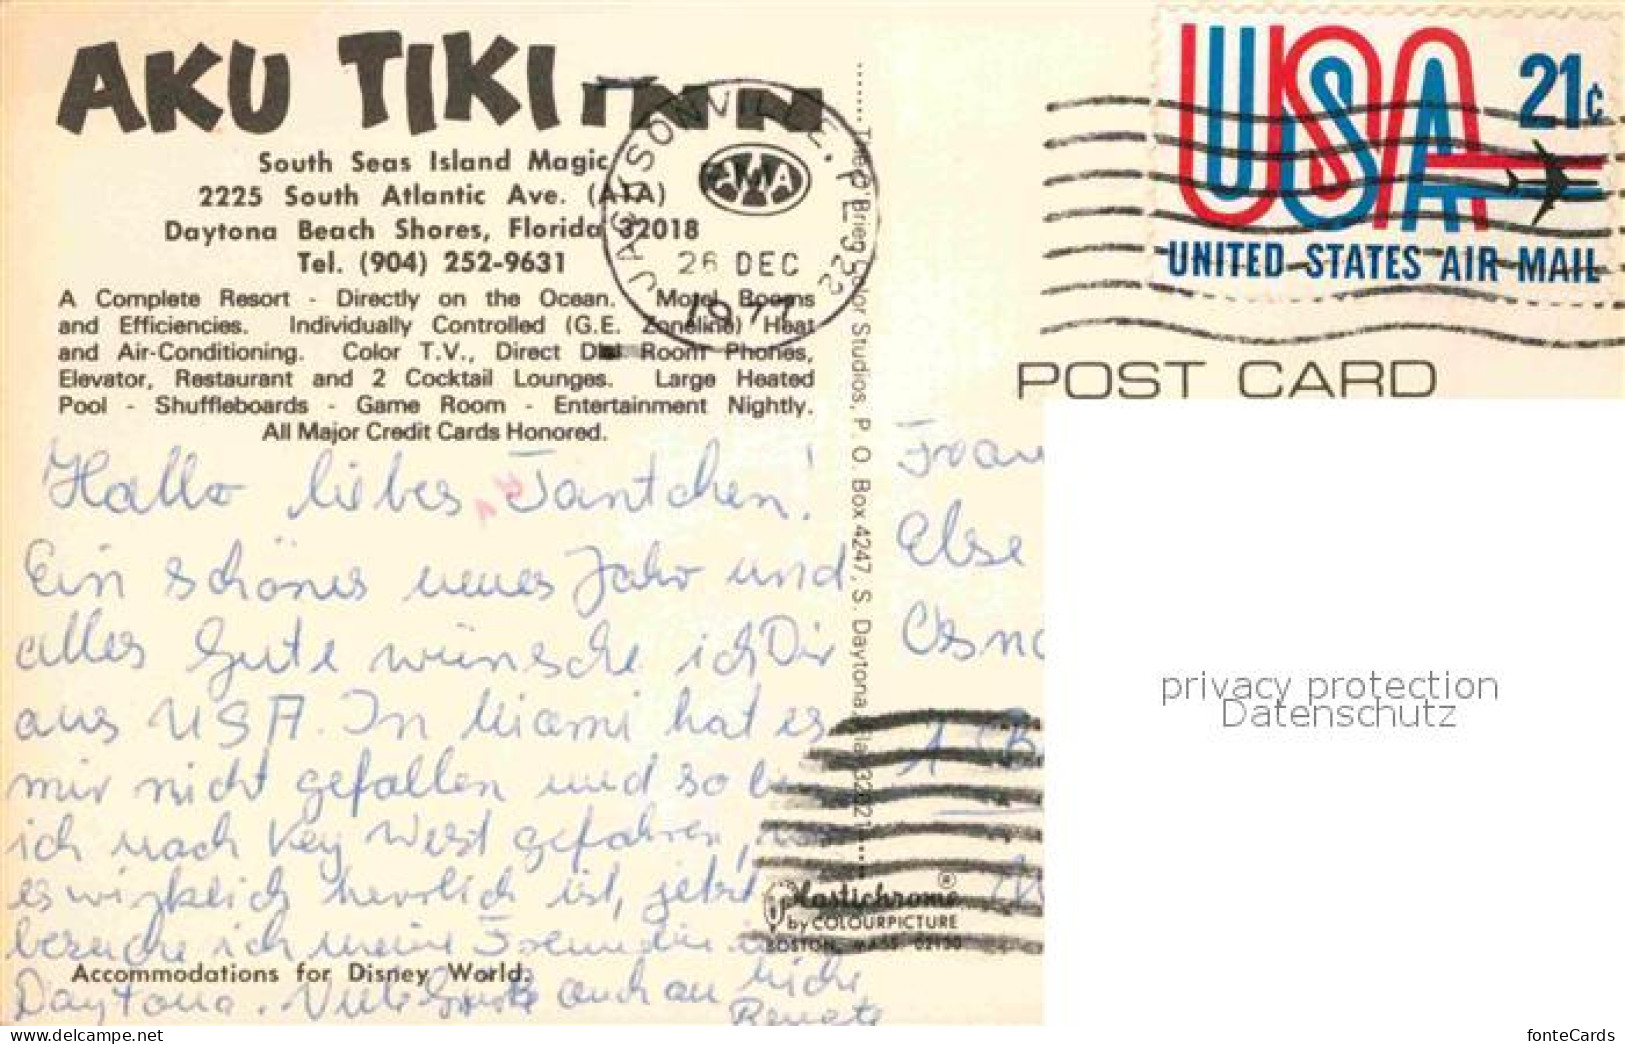 AKU TIKI INN
South Seas Island Magic
2225 South Atlantic Ave. (A1A)
Daytona Beach Shores, Florida 32018
Tel. (904) 252-9631
A Complete Resort - Directly on the Ocean. Motel Rooms
and Efficiencies. Individually Controlled (G.E. Zoneline) Heat
and Air-Conditioning. Color T.V., Direct Dial Room Phones,
Elevator, Restaurant and 2 Cocktail Lounges. Large Heated
Pool - Shuffleboards - Game Room - Entertainment Nightly.
All Major Credit Cards Honored.
JACKSONVILLE, FL 322
AMA
26 DEC
1977
Hallo liebes Tantchen!
Ein schönes neues Jahr und
alles Gute wünsche ich Dir
aus USA. In Miami hat es
mir nicht gefallen und so bin
ich nach Key West gefahren,
es wirklich herrlich ist, jetzt
besuche ich meine Freundin in
Daytona. Viele Grüße auch an
Renate
Accommodations for Disney World.
The O'Brien Color Studios, P. O. Box 4247, S. Daytona, Fla. 32021
Plastichrome ®
by COLOURPICTURE
BOSTON, MASS. 02130
USA 21c
UNITED STATES AIR MAIL
POST CARD
Frau
Else
Osna
privacy protection
Datenschutz
https://www.delcampe.net
fonteCards